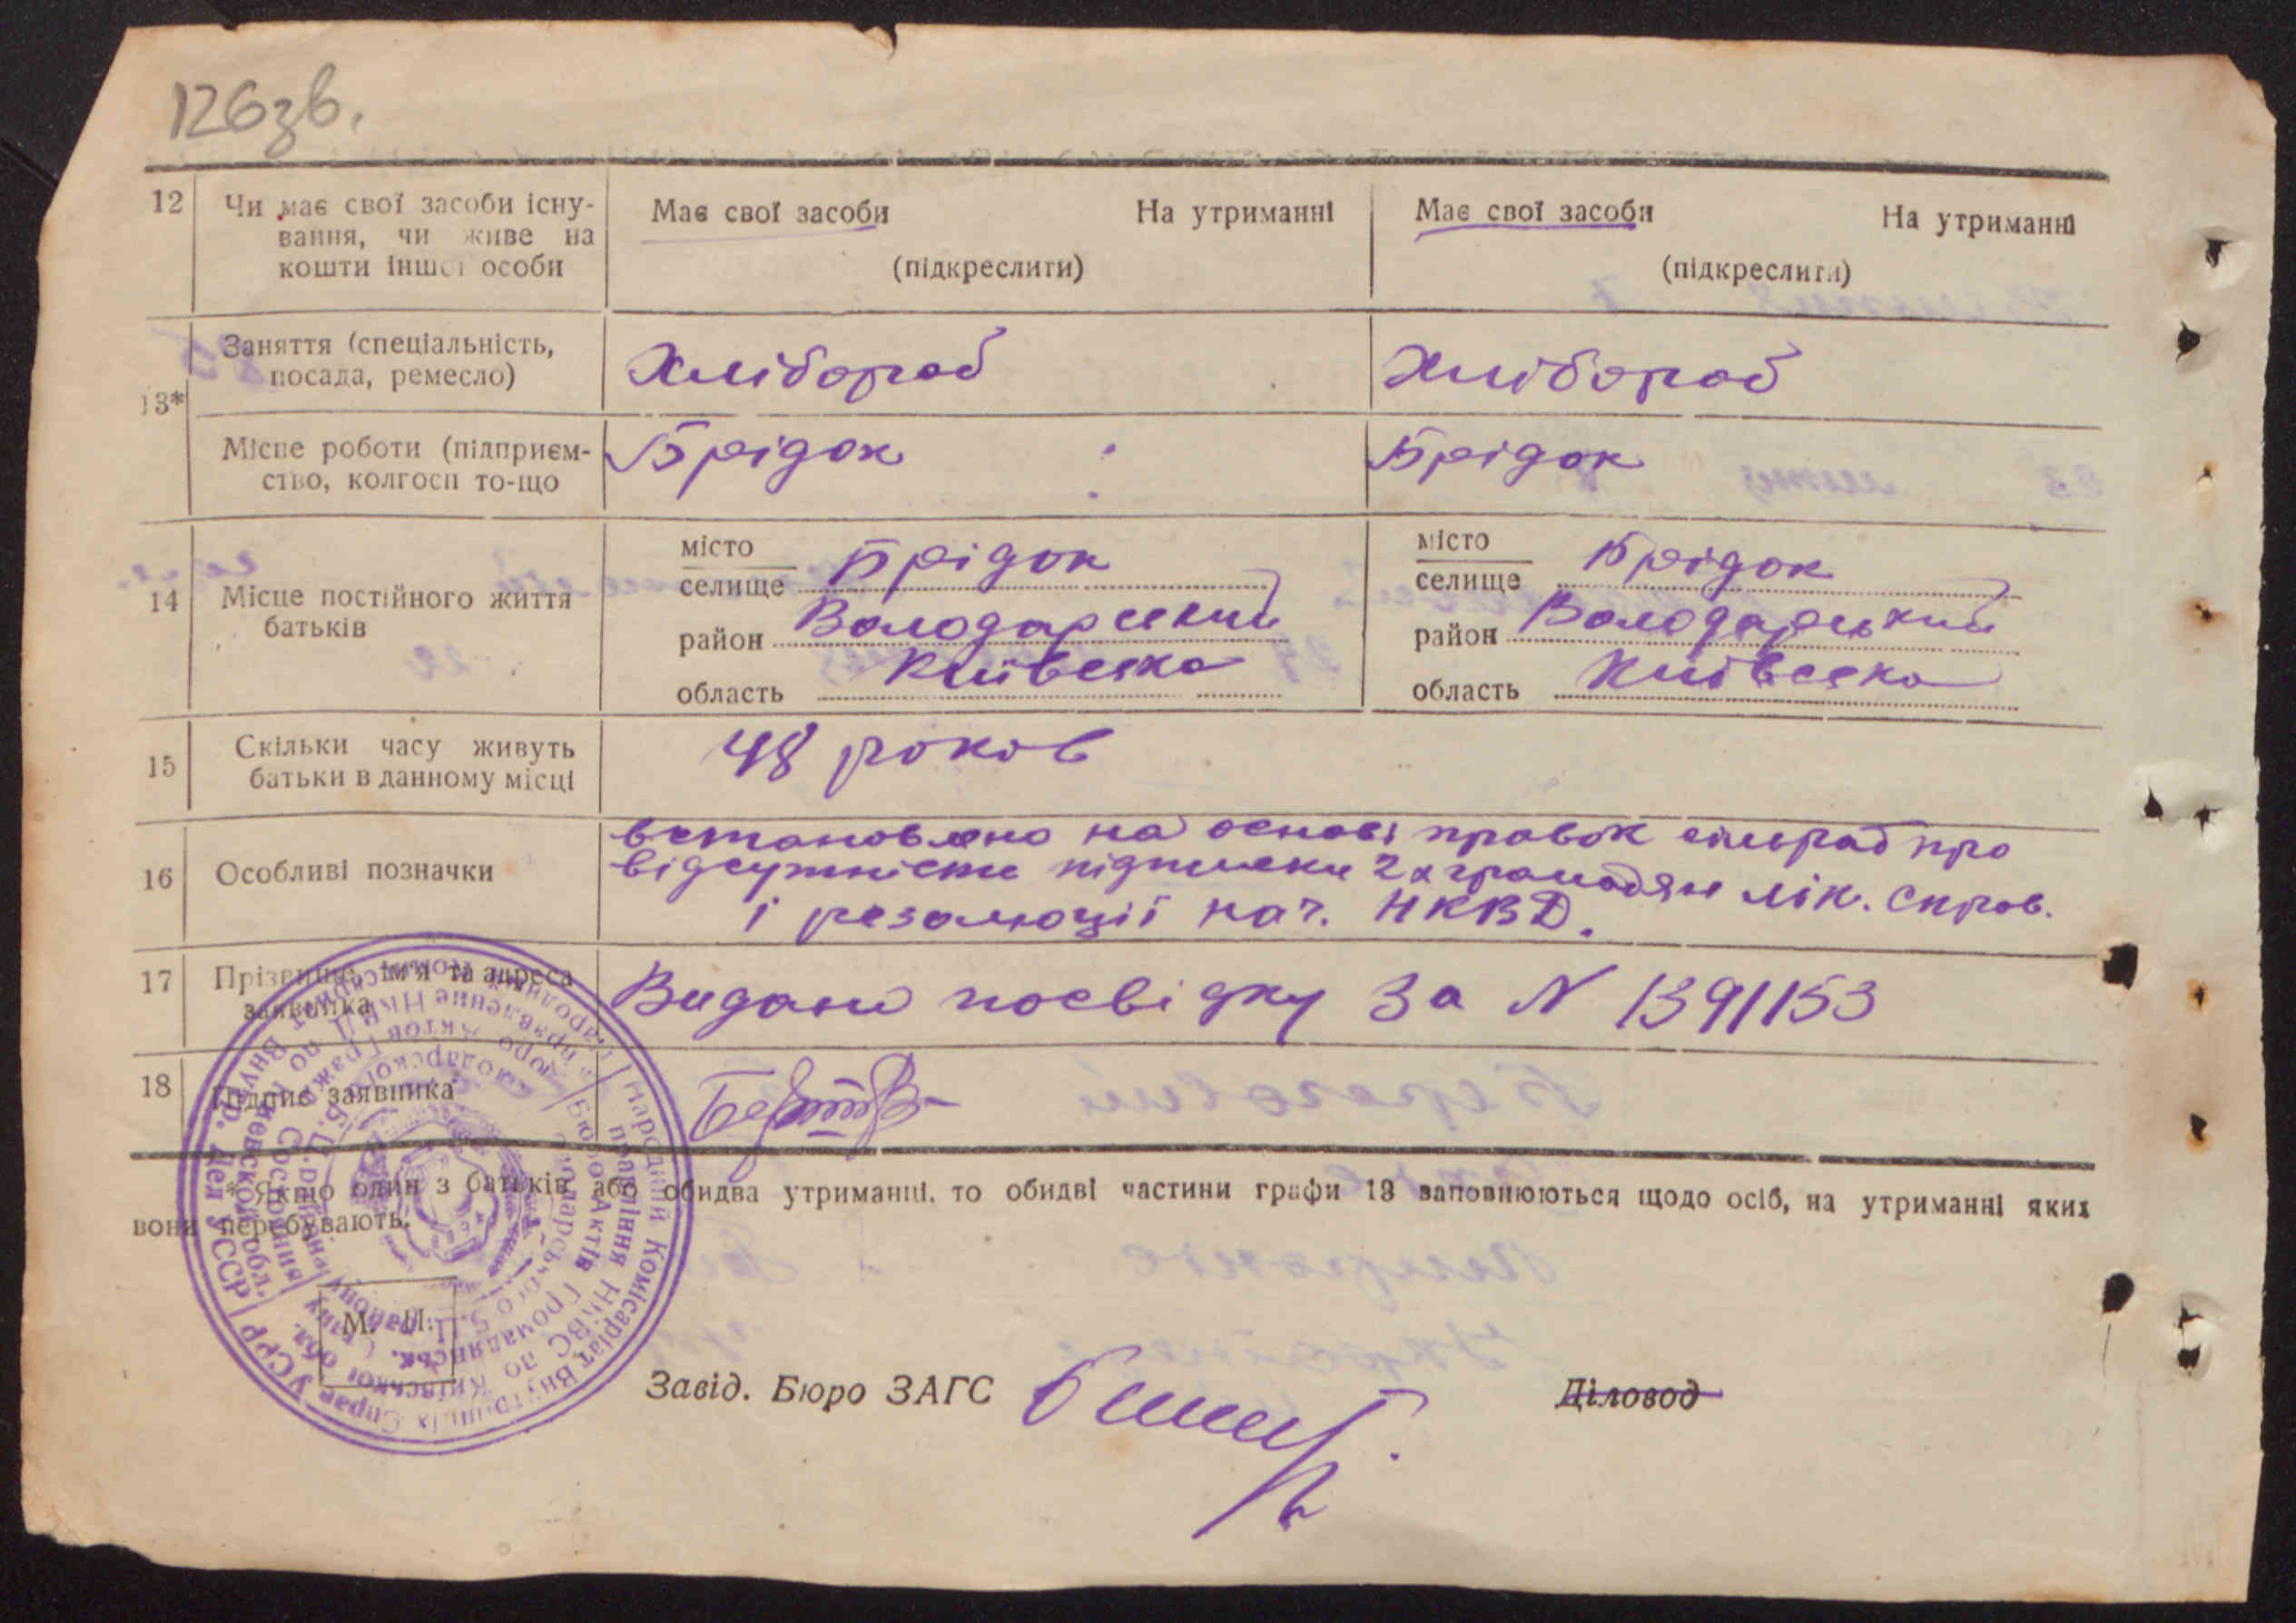 126зв.
12 Чи має свої засоби існу-
вання, чи живе на
кошти іншої особи
Має свої засоби На утриманні
(підкреслити)
Має свої засоби На утриманні
(підкреслити)
13*
Заняття (спеціальність,
посада, ремесло)
Хлібороб
Хлібороб
Місце роботи (підприєм-
ство, колгосп то-що
Брідок
Брідок
14 Місце постійного життя
батьків
місто
селище Брідок
район Володарский
область Київска
місто
селище Брідок
район Володарський
область Київска
15 Скільки часу живуть
батьки в данному місці
48 роков
16 Особливі позначки
встановлено на основі правок сільрад про
відсутність підписки 2х громадян лік. справ.
і резолюції нач. НКВД.
17 Прізвище, ім'я та адреса
заявника
Видано посвідку за N 1391153
18 Підпис заявника
* Якщо один з батьків або обидва утриманці, то обидві частини графи 13 заповнюються щодо осіб, на утриманні яких
вони перебувають.
М. П.
Завід. Бюро ЗАГС
Діловод